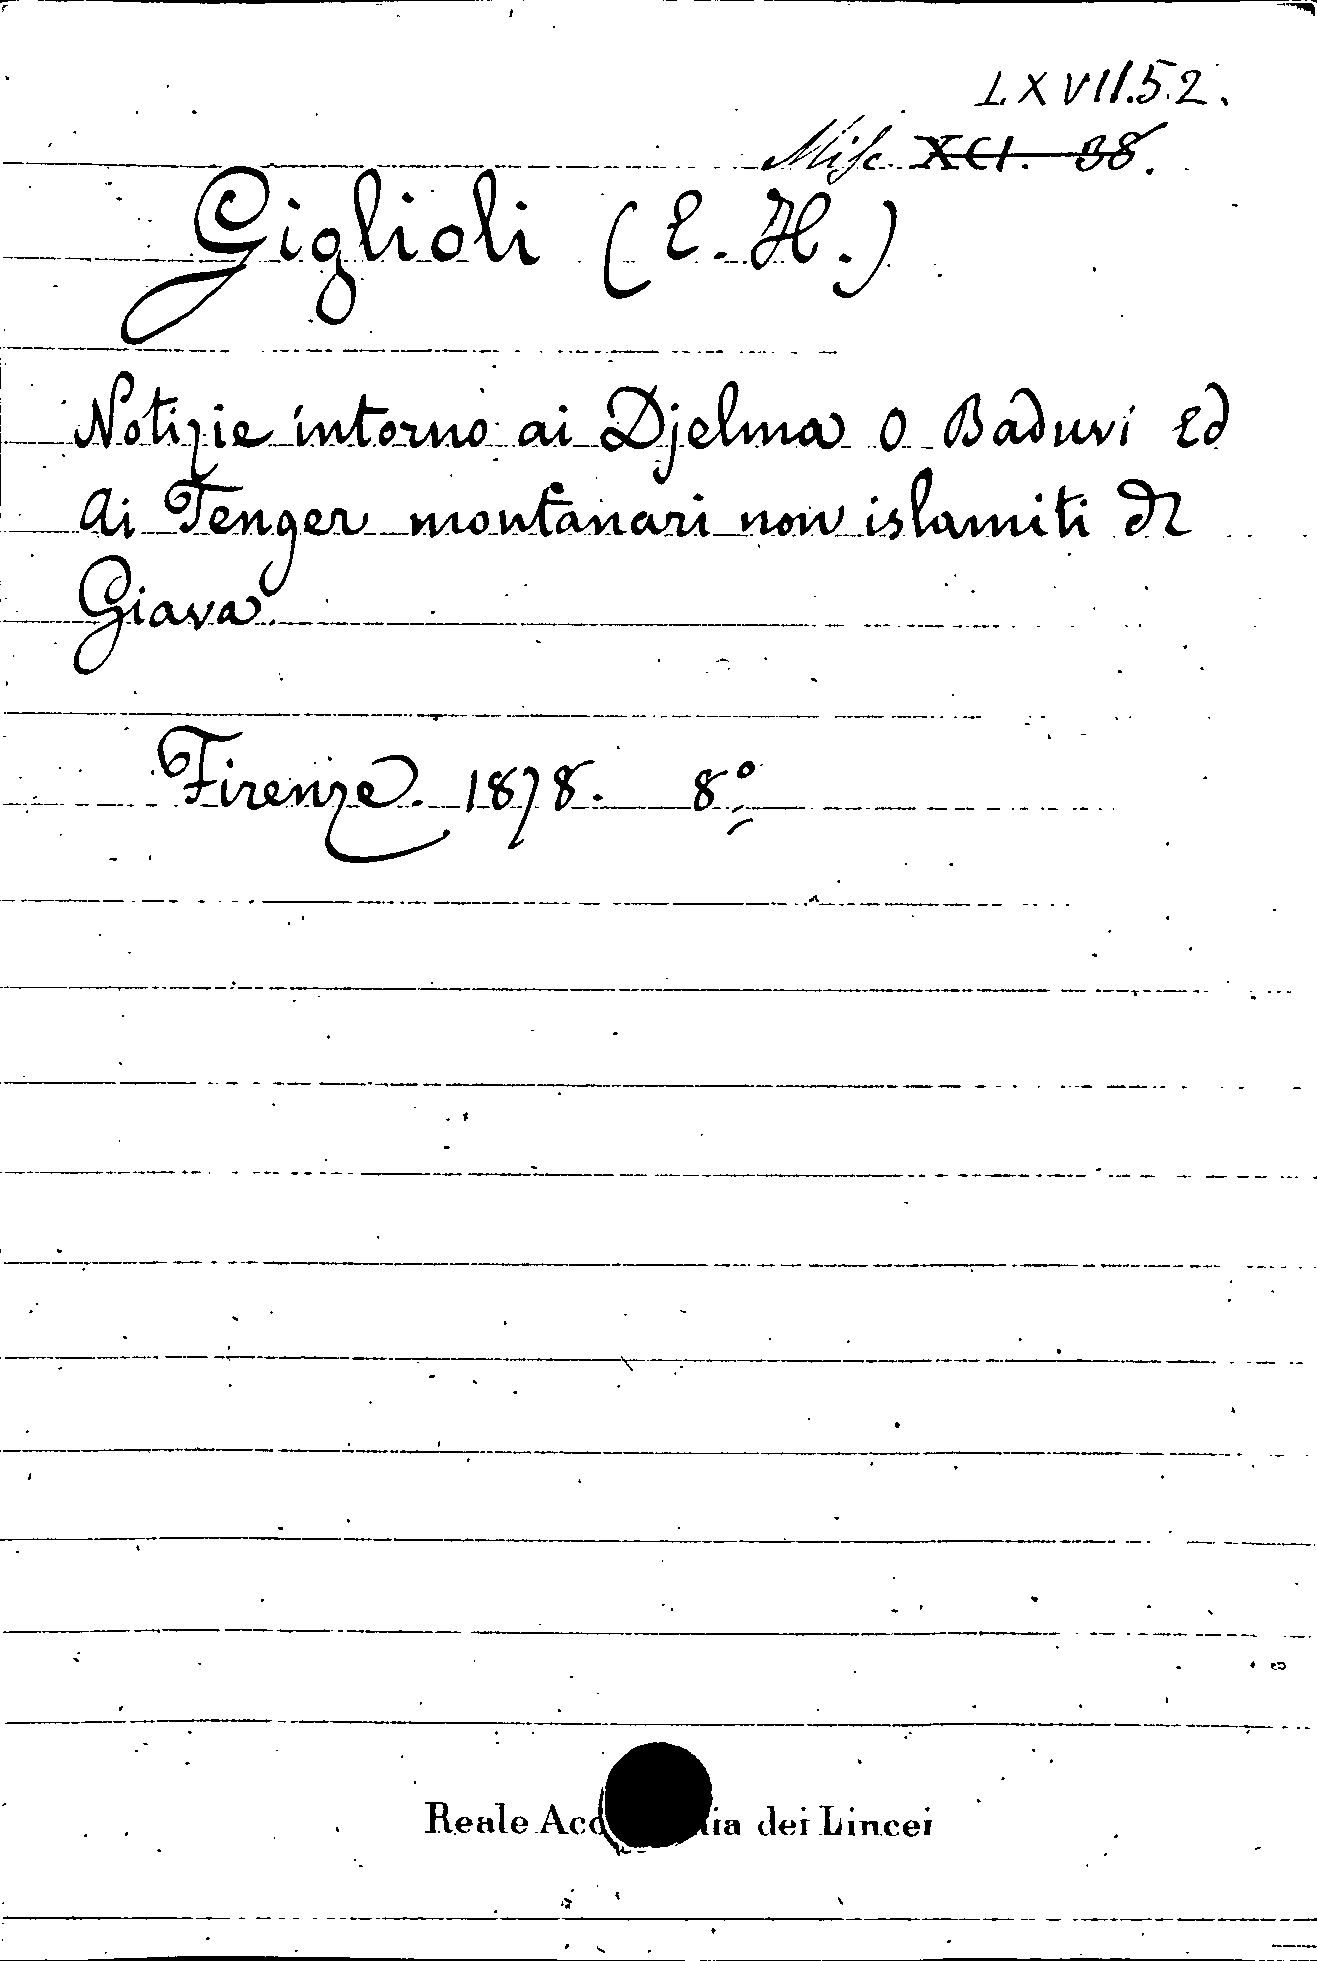 LXVII.52.
Misc. XCI. 38.
Giglioli (E. H.)
Notizie intorno ai Djelma o Baduvi ed
ai Tenger montanari non islamiti di
Giava.
Firenze. 1878. 8º
Reale Acc dei Lincei